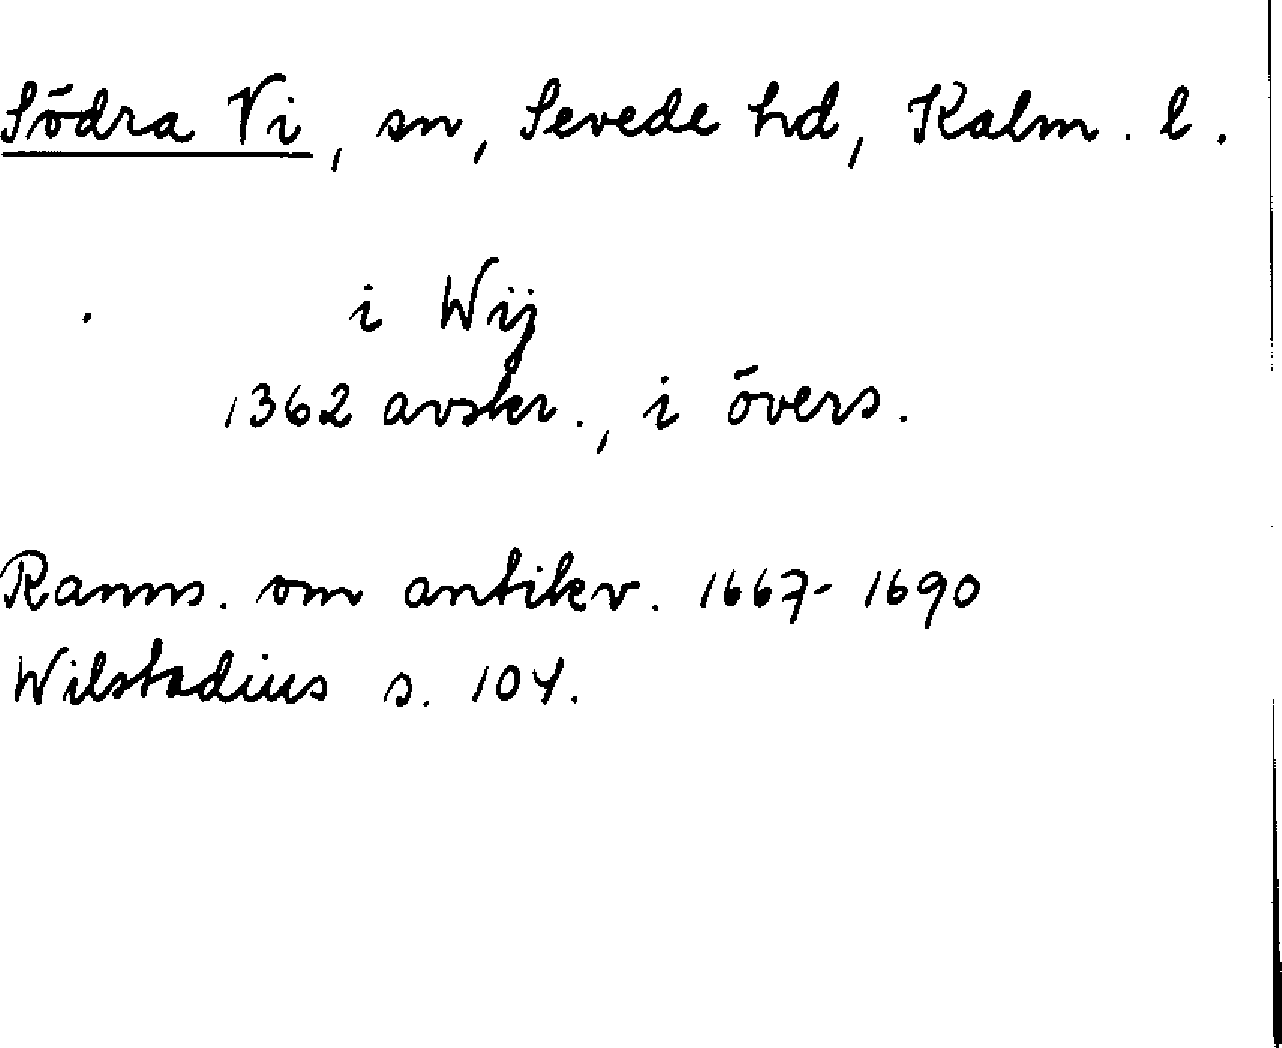 Södra Vi, sn, Sevede hd, Kalm. l.
i Wij
1362 avskr., i övers.
Ranns. om antikv. 1667-1690
Wilstadius s. 104.